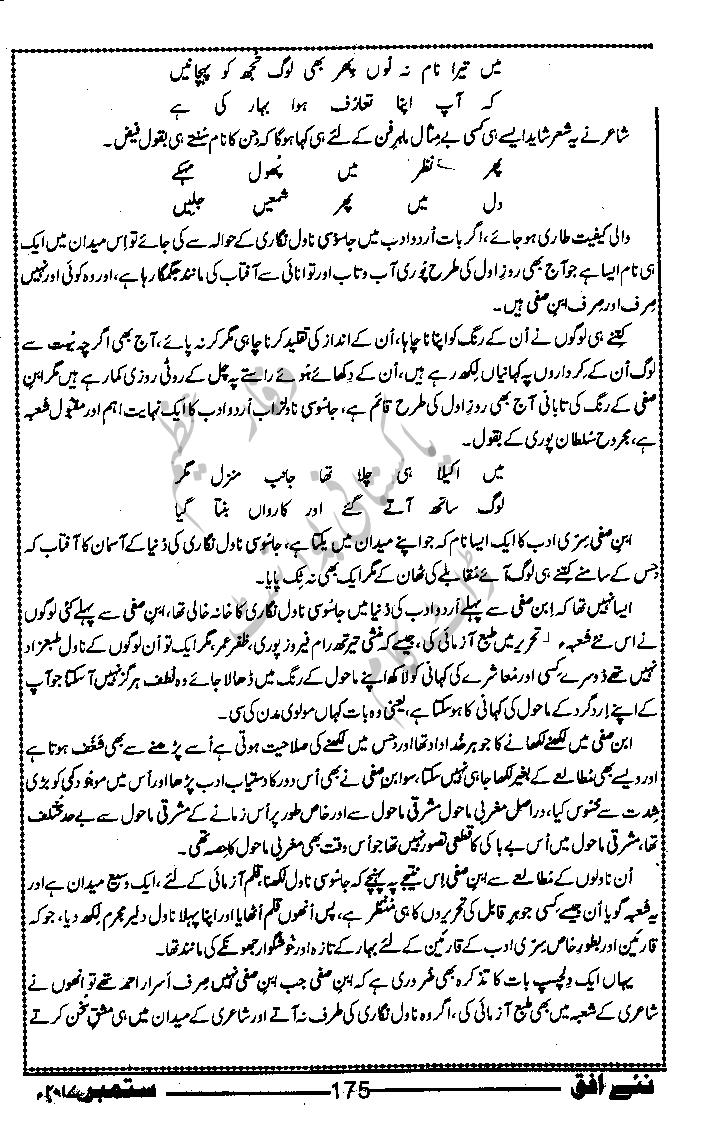 میں تیرا نام نہ لوں پھر بھی لوگ تجھ کو پہچانیں
کہ آپ اپنا تعارف ہوا بہار کی ہے
شاعر نے یہ شعر شاید ایسے ہی کسی بے مثال ماہر فن کے لئے ہی کہا ہوگا کہ جن کا نام سُنتے ہی بقول فیض۔
پھر نظر میں پھول مہکے
دل میں پھر شمعیں جلیں
والی کیفیت طاری ہوجائے، اگر بات اُردو ادب میں جاسوسی ناول نگاری کے حوالہ سے کی جائے تو اِس میدان میں ایک
ہی نام ایسا ہے جو آج بھی روزِ اول کی طرح پُوری آب و تاب اور توانائی سے آفتاب کی مانند جگمگا رہا ہے، اور وہ کوئی اور نہیں
صِرف اور صِرف ابنِ صفی ہیں۔
کِتنے ہی لوگوں نے اُن کے رنگ کو اپنانا چاہا، اُن کے انداز کی تقلید کرنا چاہی مگر کر نہ پائے، آج بھی اگرچہ بہُت سے
لوگ اُن کے کِرداروں پہ کہانیاں لِکھ رہے ہیں، اُن کے دِکھائے ہوئے راستے پہ چل کے روٹی روزی کما رہے ہیں مگر ابنِ
صفی کے رنگ کی تابانی آج بھی روزِ اول کی طرح قائم ہے، جاسُوسی ناولز اب اُردو ادب کا ایک نہایت اہم اور مقبُول شُعبہ
ہے، مجروح سُلطان پوری کے بقول۔
میں اکیلا ہی چلا تھا جانبِ منزل مگر
لوگ ساتھ آتے گئے اور کارواں بنتا گیا
ابنِ صفی سِرّی ادب کا ایک ایسا نام کہ جو اپنے میدان میں یکتا ہے، جاسُوسی ناول نگاری کی دُنیا کے آسمان کا آفتاب کہ
جِس کے سامنے کِتنے ہی لوگ آئے مُقابلے کی ٹھان کے مگر ایک بھی نہ ٹِک پایا۔
ایسا نہیں تھا کہ اِبنِ صفی سے پہلے اُردو ادب کی دُنیا میں جاسُوسی ناول نگاری کا خانہ خالی تھا، ابنِ صفی سے پہلے کئی لوگوں
نے اس نئے شُعبہء تحریر میں طبع آزمائی کی، جیسے کہ منشی تیرتھ رام فیروز پوری، ظفر عمر، مگر ایک تو اُن لوگوں کے ناول طبعزاد
نہیں تھے دُوسرے کِسی اور مُعاشرے کی کہانی کو لاکھ اپنے ماحول کے رنگ میں ڈھالا جائے وہ لُطف ہرگز نہیں آسکتا جو آپ
کے اپنے اِردگرد کے ماحول کی کہانی کا ہو سکتا ہے، یعنی وہ بات کہاں مولوی مدن کی سی۔
ابنِ صفی میں لِکھنے لکھانے کا جوہر خُداداد تھا اور جِس میں لِکھنے کی صلاحیت ہوتی ہے اُسے پڑھنے سے بھی شغف ہوتا ہے
اور ویسے بھی مُطالعے کے بغیر لکھا جاہی نہیں سکتا، سو ابنِ صفی نے بھی اُس دور کا دستیاب ادب پڑھا اور اُس میں موجُود کمی کو بڑی
شِدت سے محسُوس کیا، دراصل مغربی ماحول مشرقی ماحول سے اور خاص طور پر اُس زمانے کے مشرقی ماحول سے بے حد مختلف
تھا، مشرقی ماحول میں اُس بے باکی کا قطعی تصور نہیں تھا جو اُس وقت بھی مغربی ماحول کا حصہ تھی۔
اُن ناولوں کے مُطالعے سے ابنِ صفی اِس نتیجے پہ پہنچے کہ جاسُوسی ناول لکھنا، قلم آزمائی کے لئے، ایک وسیع میدان ہے اور
یہ شُعبہ گویا اُن جیسے کِسی جوہرِ قابل کی تحریروں کا ہی مُنتظر ہے، پس اُنھوں نے قلم اُٹھایا اور اپنا پہلا ناول دلیر مجرم لِکھ دیا، جو کہ
قارئین اور بطورِ خاص سِرّی ادب کے قارئین کے لئے بہار کے تازہ اور خُوشگوار جھونکے کی مانند تھا۔
یہاں ایک دِلچسپ بات کا تذکرہ بھی ضُروری ہے کہ ابنِ صفی جب ابنِ صفی نہیں صِرف اَسرار احمد تھے تو اُنھوں نے
شاعری کے شُعبہ میں بھی طبع آزمائی کی، اگر وہ ناول نگاری کی طرف نہ آتے اور شاعری کے میدان میں ہی مشقِ سُخن کرتے
نئے افق 175 ستمبر